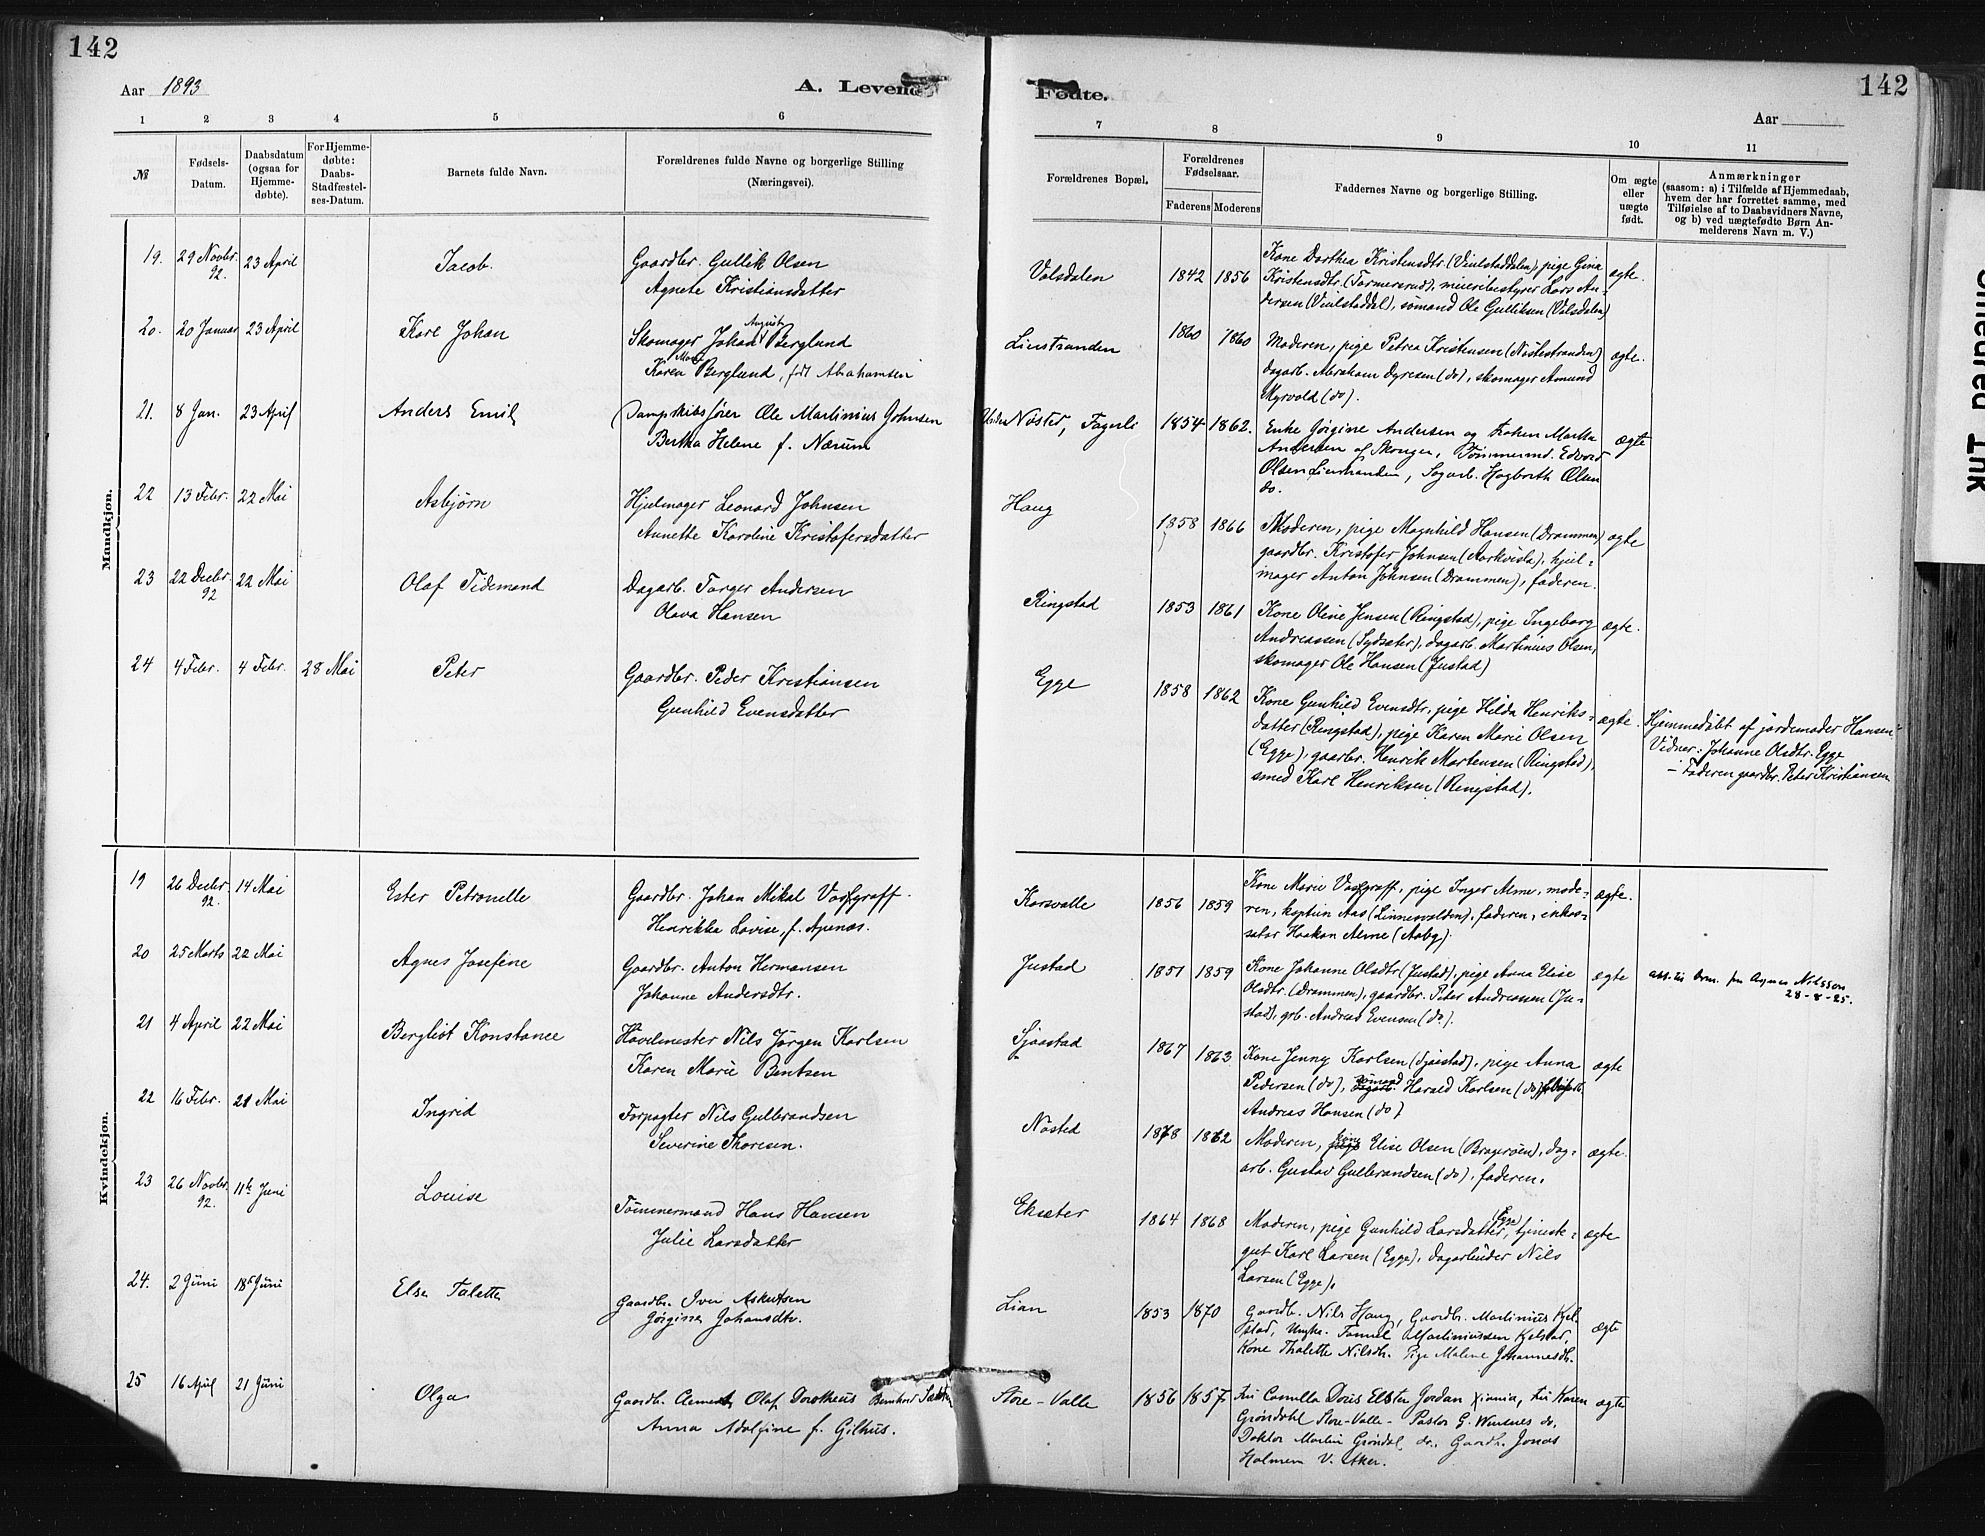 142
142
Aar 1893
A. Levende
Fødte.
Aar
1 2 3 4 5 6
7 8 9 10 11
№
Fødsels-Datum.
Daabsdatum (ogsaa for Hjemmedøbte).
For Hjemmedøbte: Daabs-Stadfæstelses-Datum.
Barnets fulde Navn.
Forældrenes fulde Navne og borgerlige Stilling
(Næringsvei).
Forældrenes Bopæl.
Forældrenes Fødselsaar.
Faderens Moderens
Faddernes Navne og borgerlige Stilling.
Om ægte eller uægte født.
Anmærkninger
(saasom: a) i Tilfælde af Hjemmedaab,
hvem der har forrettet samme, med
Tilføielse af to Daabsvidners Navne,
og b) ved uægtefødte Børn Anmelderens Navn m. V.)
Mandkjøn.
19. 29 Novbr. 92. 23 April Jacob. Gaardbr. Gullik Olsen
Agnete Kristiansdatter
Valsdalen 1842 1856 Kone Dorthea Kristensdtr. (Viulstaddalen), pige Gina
Kristensdtr. (Tormersrud), meieribestyrer Lars An-
dersen (Viulstaddal), sømand Ole Gulliksen (Valsdalen) ægte.
20. 20 Januar 23 April Karl Johan Skomager Johan August Berglund
Karen Marie Berglund, født Abrahamsen
Lierstranden 1860 1860 Moderen, pige Petrea Kristensen (Nøstestranden)
dagarb. Abraham Dyresen (do), skomager Amund
Myrvold (do). ægte.
21. 8 Jan. 23 April Anders Emil Dampskibsfører Ole Martinius Johnsen
Bertha Helene f. Nærum
Nøsted, Fagerli 1854 1862. Enke Gørgine Andersen og Frøken Martha
Andersen af Skoger, Tømmermd. Edvard
Olsen Lierstranden, Sagarb. Hagbarth Olsen
do. ægte
22 13 Febr. 22 Mai Asbjørn Hjulmager Leonard Johnsen
Annette Karoline Kristofersdatter
Haug 1858 1866 Moderen, pige Magnhild Hansen (Drammen)
gaardbr. Kristofer Johnsen (Aarkvisla), hjul-
mager Anton Johnsen (Drammen), faderen. ægte
23 22 Decbr. 92 22 Mai Olaf Tidemand Dagarb. Torger Andersen
Olava Hansen
Ringstad 1853 1861 Kone Oline Jensen (Ringstad), pige Ingeborg
Andreassen (Sydsæter), dagarb. Martinius Olsen,
skomager Ole Hansen (Justad) ægte.
24 4 Febr. 4 Febr. 28 Mai Peter Gaardbr. Peder Kristiansen
Gunhild Evensdatter
Egge 1858 1862 Kone Gunhild Evensdtr, pige Hilda Henriks-
datter (Ringstad), pige Karen Marie Olsen
(Egge), gaarbr. Henrik Martensen (Ringstad),
smed Karl Henriksen (Ringstad). ægte.
Hjemmedøbt af jordemoder Hansen
Vidner: Johanne Olsdtr. Egge
- Faderen gaardbr. Peter Kristiansen
Kvindekjøn.
19 26 Decbr. 92. 14 Mai Ester Petronelle Gaardbr. Johan Mikal Vossgraff.
Henrikke Lovise, f. Apenæs.
Korsvalle 1856 1859 Kone Marie Vossgraff, pige Inger Arne, mode-
ren, kaptein Aas (Linnesvolden), faderen, inkas-
sator Haakon Arne (Aaby). ægte.
20 25 Marts 22 Mai Agnes Josefine Gaardbr. Anton Hermansen
Johanne Andersdtr.
Justad 1851 1859 Kone Johanne Olsdtr. (Justad), pige Anna Elise
Olsdtr. (Drammen), gaardbr. Peter Andreassen (Ju-
stad), grb. Andreas Evensen (do). ægte
Agnes Nilsson
28-8-25.
21 4 April 22 Mai Bergliot Konstance Høvlmester Nils Jørgen Karlsen
Karen Marie Bentsen
Sjaastad 1867 1863 Kone Jenny Karlsen (Sjaastad), pige Anna
Pedersen (do), sømand Harald Karlsen (do)
Andreas Hansen (do) ægte
22 16 Febr. 21 Mai Ingrid Forpagter Nils Gulbrandsen
Severine Thoresen.
Nøsted 1868 1862 Moderen, kone Elise Olsen (Bragerøen), dag-
arb. Gustav Gulbrandsen (do), faderen. ægte.
23 26 Novbr. 92. 11te Juni Louise Tømmermand Hans Hansen
Julie Larsdatter
Eksæter 1864 1868 Moderen, pige Gunhild Larsdatter (Egge), tjeneste-
gut Karl Larsen (Egge), dagarbeider Nils
Larsen (Egge). ægte
24. 2 Juni 18 Juni Else Talette Gaardbr. Iver Askutsen
Gørgine Johansdtr.
Lian 1853 1870 Gaardb. Nils Haug, Gaardbr. Martinius Kjel-
stad, Ungka. Tomul Martiniussen Kjelstad,
Kone Thalette Nilsdtr. Pige Malene Johannesdtr. ægte
25 16 April 21 Juni Olga Gaardb. Clement Olaf Dorotheus Bernhard
Anna Adolfine f. Gilhus.
Store-Valle 1856 1857 Fru Camilla Doris Elster Jordan Kristiania, Fru Karen
Grøndahl Store-Valle - Pastor G. Wersnes do,
Doktor Martin Grøndal do. Gaardb. Jonas
Holmen V. Aker. ægte